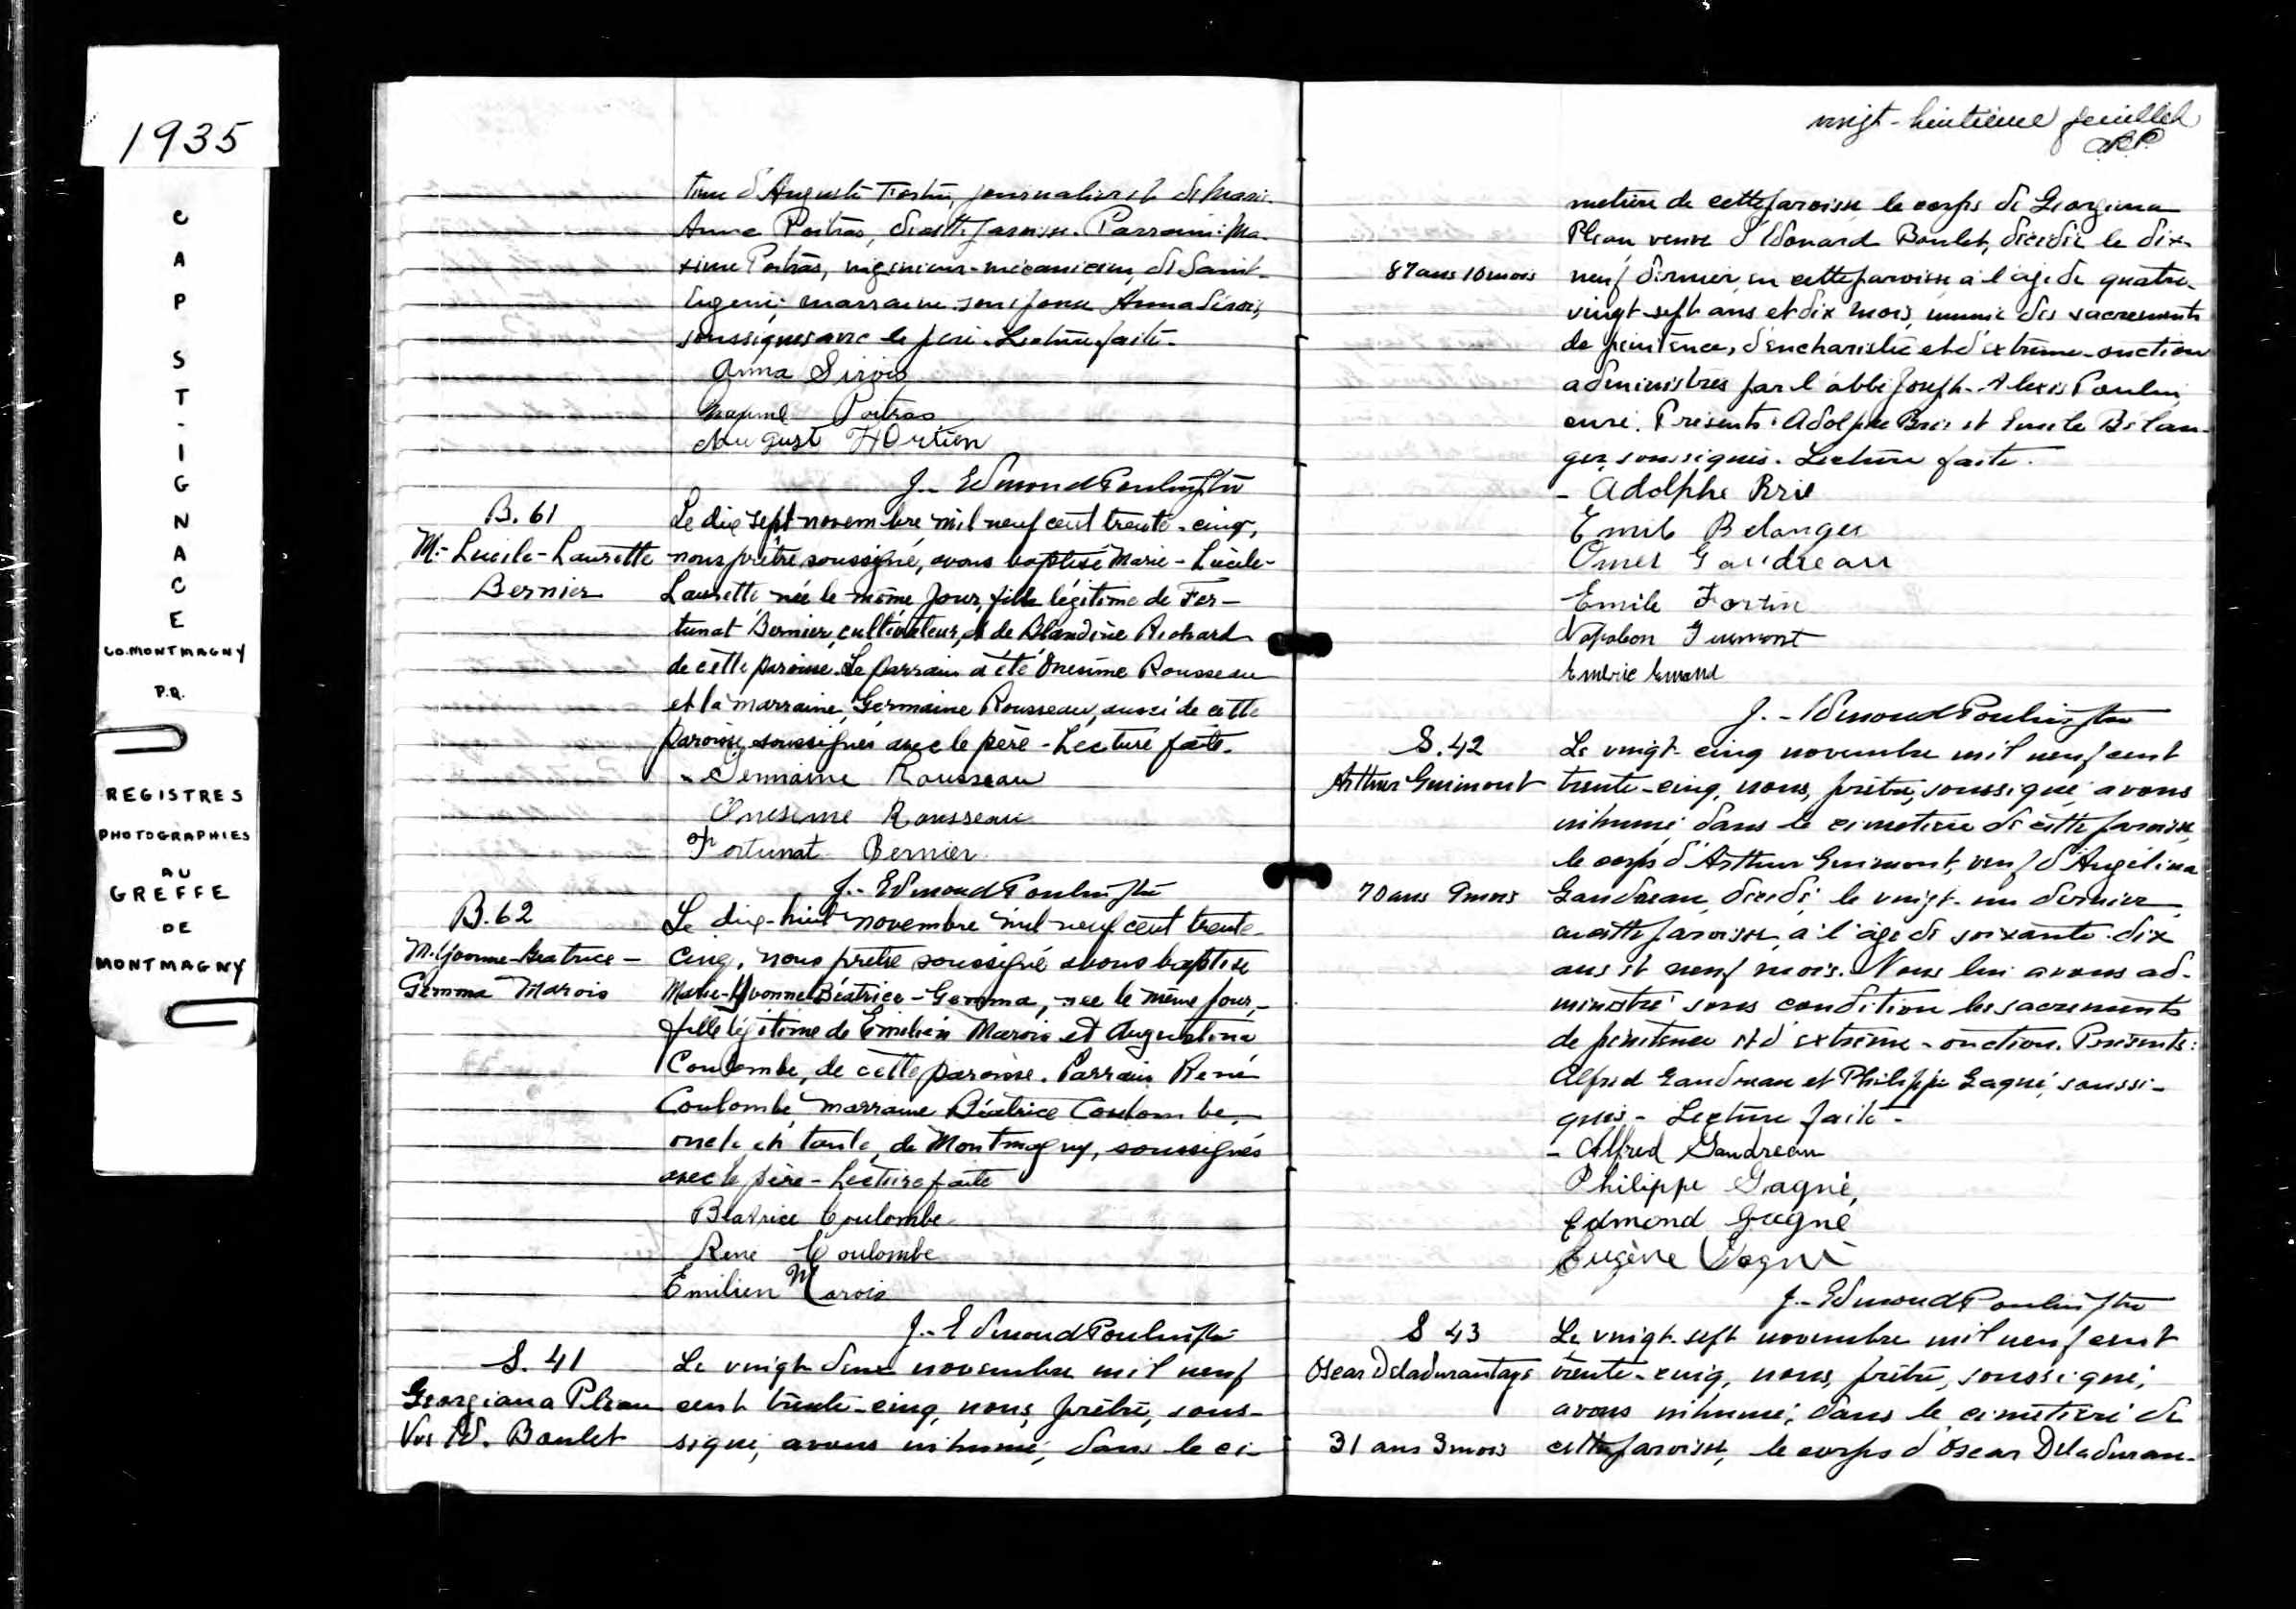 1935
CAP ST-IGNACE
CO. MONTMAGNY
P.Q.
REGISTRES
PHOTOGRAPHIES
AU
GREFFE
DE
MONTMAGNY
time d'Auguste Fortin, journalier et de Marie-
Anne Poitras, de cette paroisse. Parrain: Ma-
xime Poitras, ingénieur-mécanicien, de Saint-
Eugène; marraine son épouse Anna Sirois,
soussignés avec le père. Lecture faite.
Anna Sirois
Maxime Poitras
August FOrtien
J.-Edmond Poulin ptre
B. 61
M.-Lucile-Laurette
Bernier
Le dix sept novembre mil neuf cent trente-cinq,
nous prêtre soussigné, avons baptisé Marie-Lucile-
Laurette née le même jour, fille légitime de For-
tunat Bernier, cultivateur, et de Blandine Richard
de cette paroisse. Le parrain a été Onésime Rousseau
et la marraine, Germaine Rousseau, aussi de cette
paroisse, soussignés avec le père - Lecture faite.
- Germaine Rousseau
Onesime Rousseau
Fortunat Bernier
J.-Edmond Poulin ptre
B. 62
M. Yvonne-Béatrice-
Gemma Marois
Le dix-huit novembre mil neuf cent trente-
cinq, nous prêtre soussigné avons baptisé
Marie-Yvonne Béatrice-Gemma, née le même jour,
fille légitime de Emilien Marois et Augustina
Coulombe, de cette paroisse. Parrain René
Coulombe, marraine Béatrice Coulombe,
oncle et tante, de Montmagny, soussignés
avec le père - Lecture faite
Béatrice Coulombe
Rene Coulombe
Emilien Marois
J.-Edmond Poulin ptre
S. 41
Georgiana Pleau
Vve Ed. Boulet
Le vingt-deux novembre mil neuf
cent trente-cinq, nous, prêtre, sous-
signé, avons inhumé, dans le ci-
vingt-huitième feuillet
metière de cette paroisse le corps de Georgiana
Pleau veuve d'Edouard Boulet, décédée le dix-
87 ans 10 mois
neuf dernier, en cette paroisse à l'âge de quatre-
vingt-sept ans et dix mois, munie des sacrements
de pénitence, d'eucharistie et d'extrême-onction
administrés par l'abbé Joseph-Alexis Poulin,
curé. Présents: Adolphe Brie et Emile Bélan-
ger, soussignés. Lecture faite.
- Adolphe Brie
Emile Belanger
Omer Gaudreau
Emile Fortin
Napoleon Guimont
Emeric Emond
J.-Edmond Poulin ptre
S. 42
Arthur Guimont
Le vingt-cinq novembre mil neuf cent
trente-cinq, nous, prêtre, soussigné, avons
inhumé dans le cimetière de cette paroisse,
le corps d'Arthur Guimont, veuf d'Angélina
70 ans 9 mois
Gaudreau, décédé, le vingt-un dernier,
en cette paroisse, à l'âge de soixante-dix
ans et neuf mois. Nous lui avons ad-
ministré sous condition les sacrements
de pénitence et d'extrême-onction. Présents:
Alfred Gaudreau et Philippe Gagné, soussi-
gnés - Lecture faite -
- Alfred Gaudreau
Philippe Gagné,
Edmond Gagné
Eugène Gagné
J.-Edmond Poulin ptre
S 43
Oscar Deladurantaye
Le vingt-sept novembre mil neuf cent
trente-cinq, nous, prêtre, soussigné,
avons inhumé, dans le cimetière de
31 ans 3 mois
cette paroisse, le corps d'Oscar Deladuran-